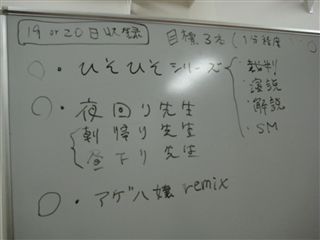 19 or 20日収録
目標3本(1分程度
○・ひそひそシリーズ
・裁判
・演説
・解説
・SM
○・夜回り先生
朝帰り先生
昼下り先生
○・アゲハ嬢 remix